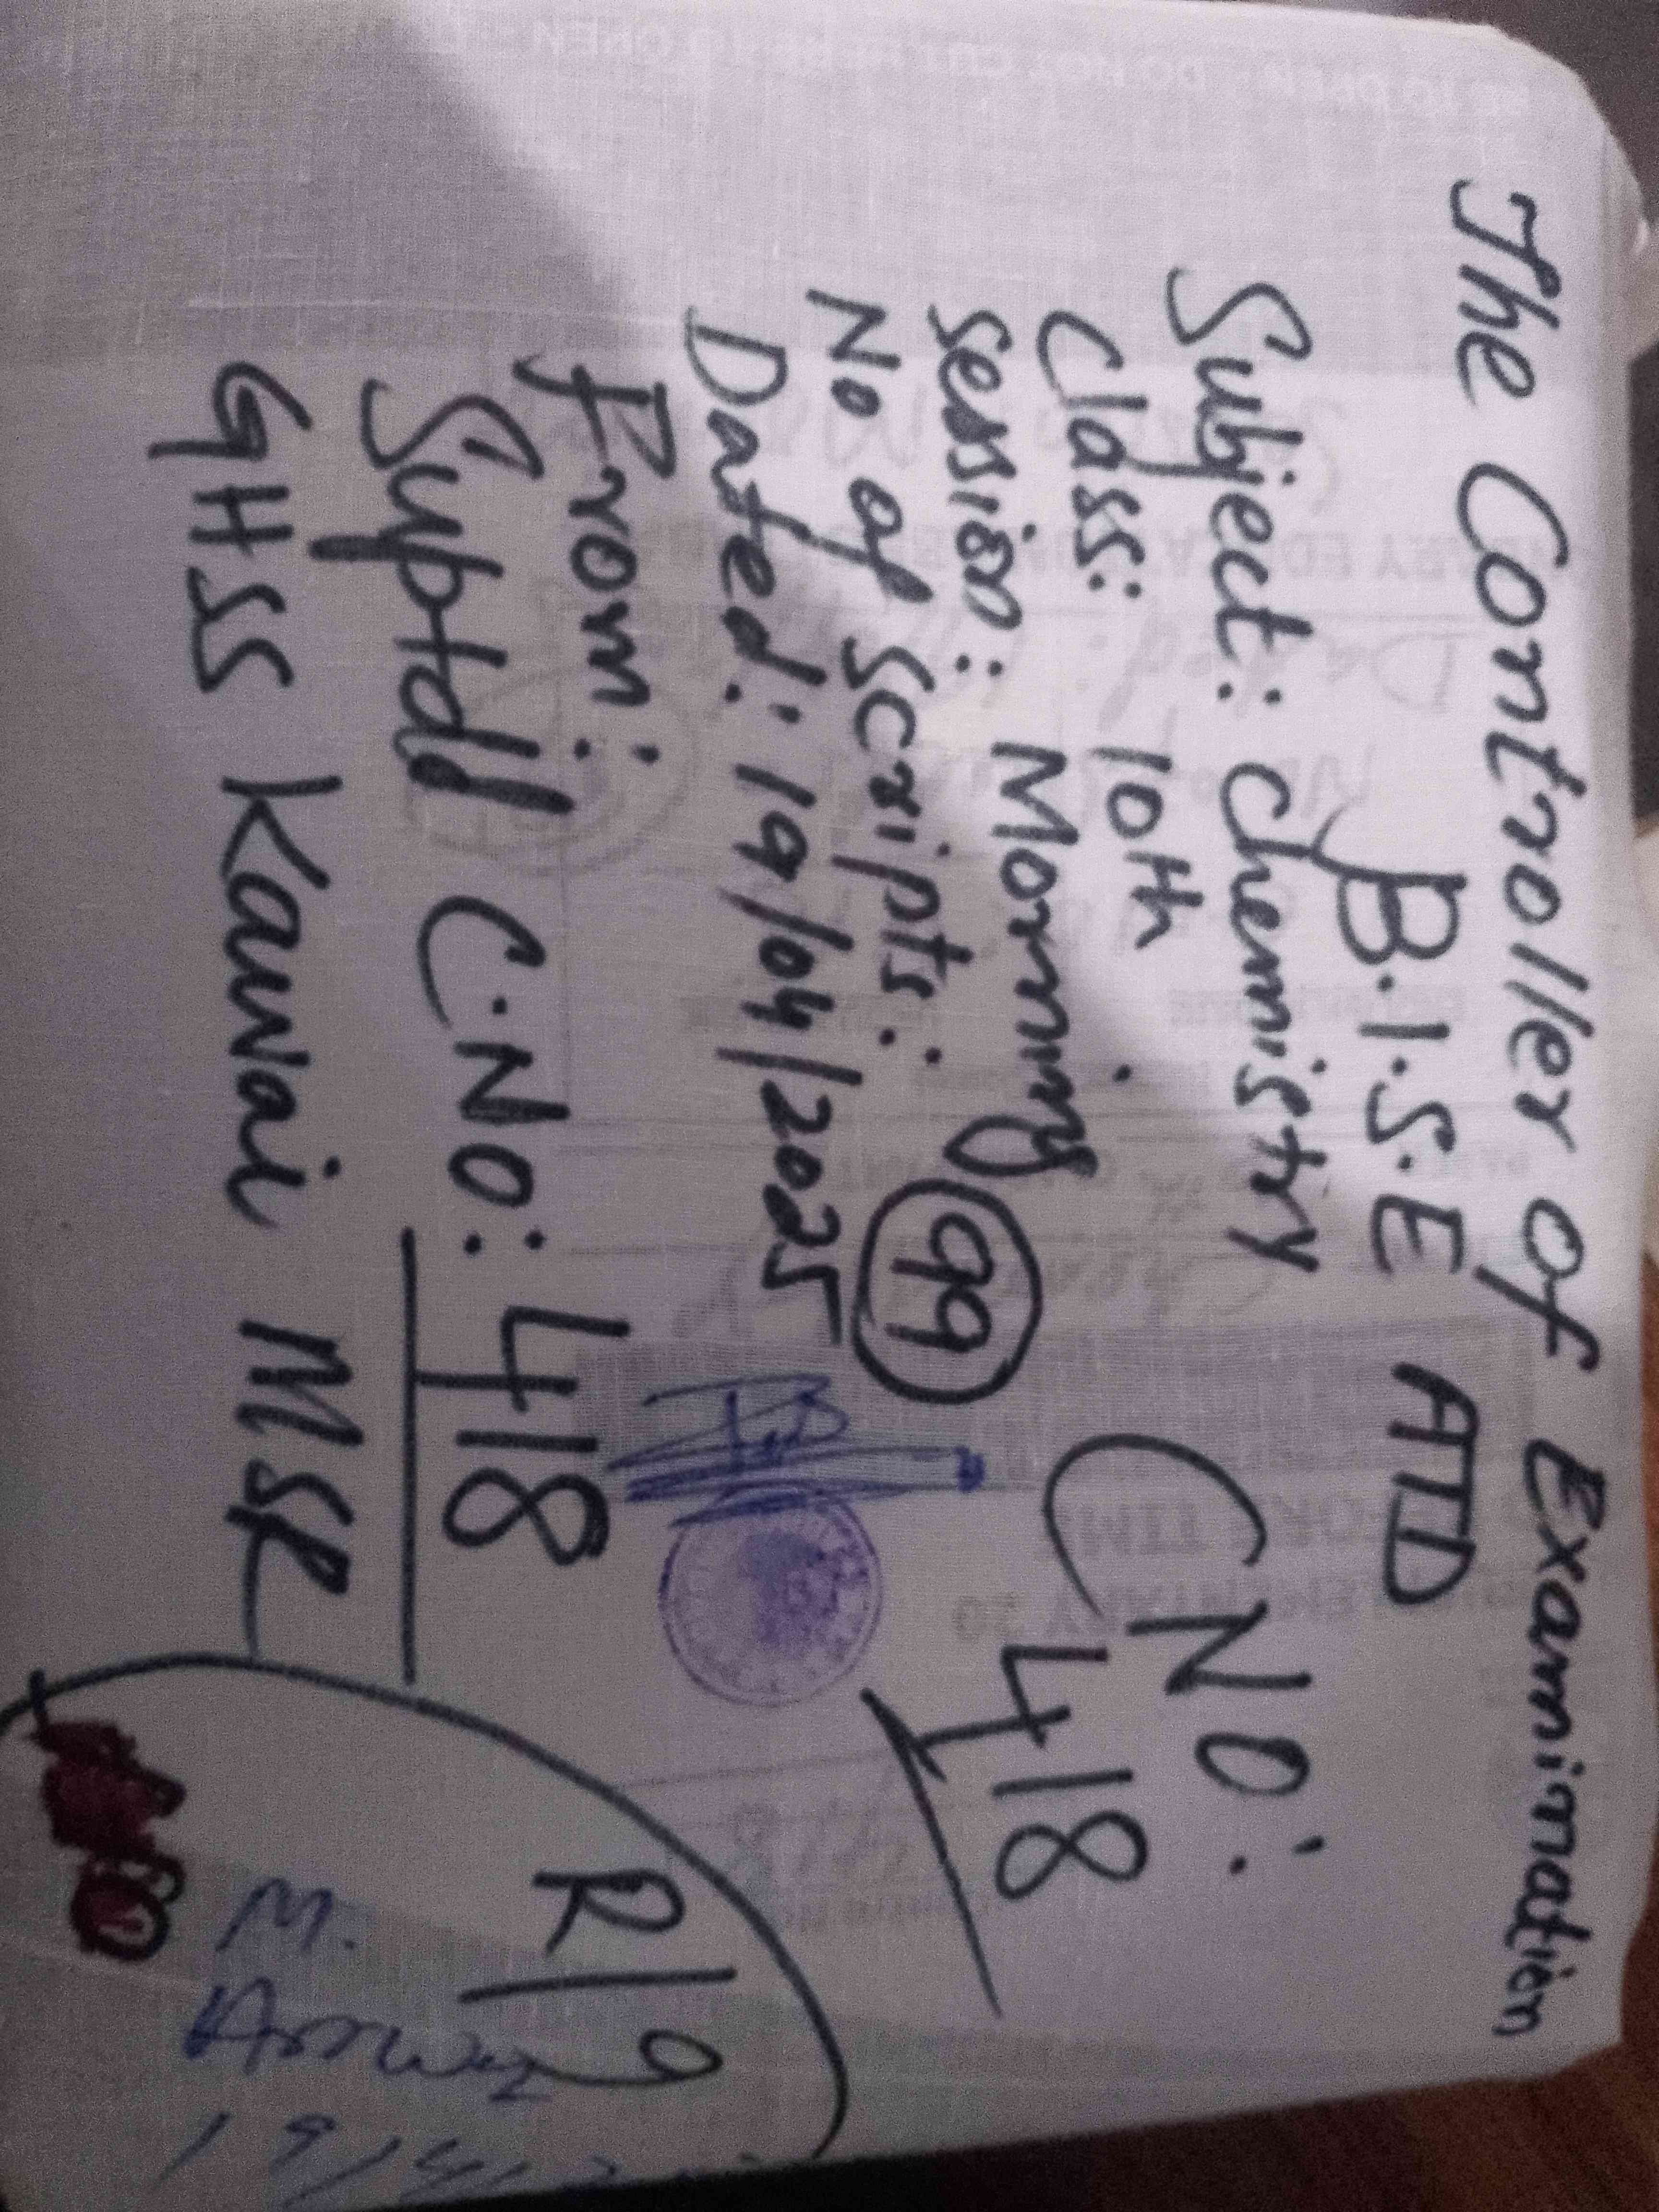 The Controller of Examination
B.I.S.E ATD
Subject: Chemistry
Class: 10th
Session: Morning
C No: 418
No of Scripts: 99
Dated: 19/04/2025
From:
Suptdt C.No: 418
GHSS Kawai MSR
R/9
M.
19/4/